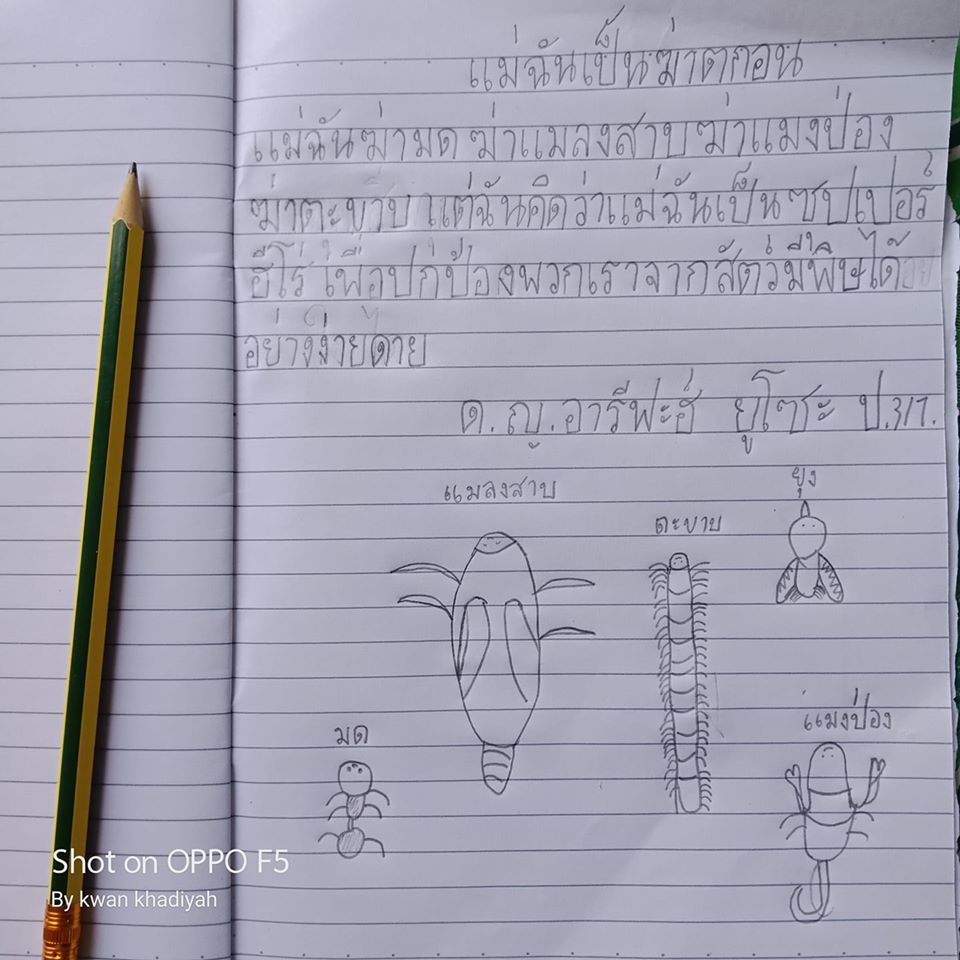 แม่ฉันเป็นฆ่าตกอน
แม่ฉันฆ่ามด ฆ่าแมลงสาบ ฆ่าแมงป่อง
ฆ่าตะขาบ แต่ฉันคิดว่าแม่ฉันเป็นซุปเปอร์
ฮีโร่ เพื่อปกป้องพวกเราจากสัตว์มีพิษได้
อย่างง่ายดาย
ด.ญ.อารีฟะฮ์ ยูโซะ ป.3/7.
แมลงสาบ
ตะขาบ
ยุง
มด
แมงป่อง
Shot on OPPO F5
By kwan khadiyah